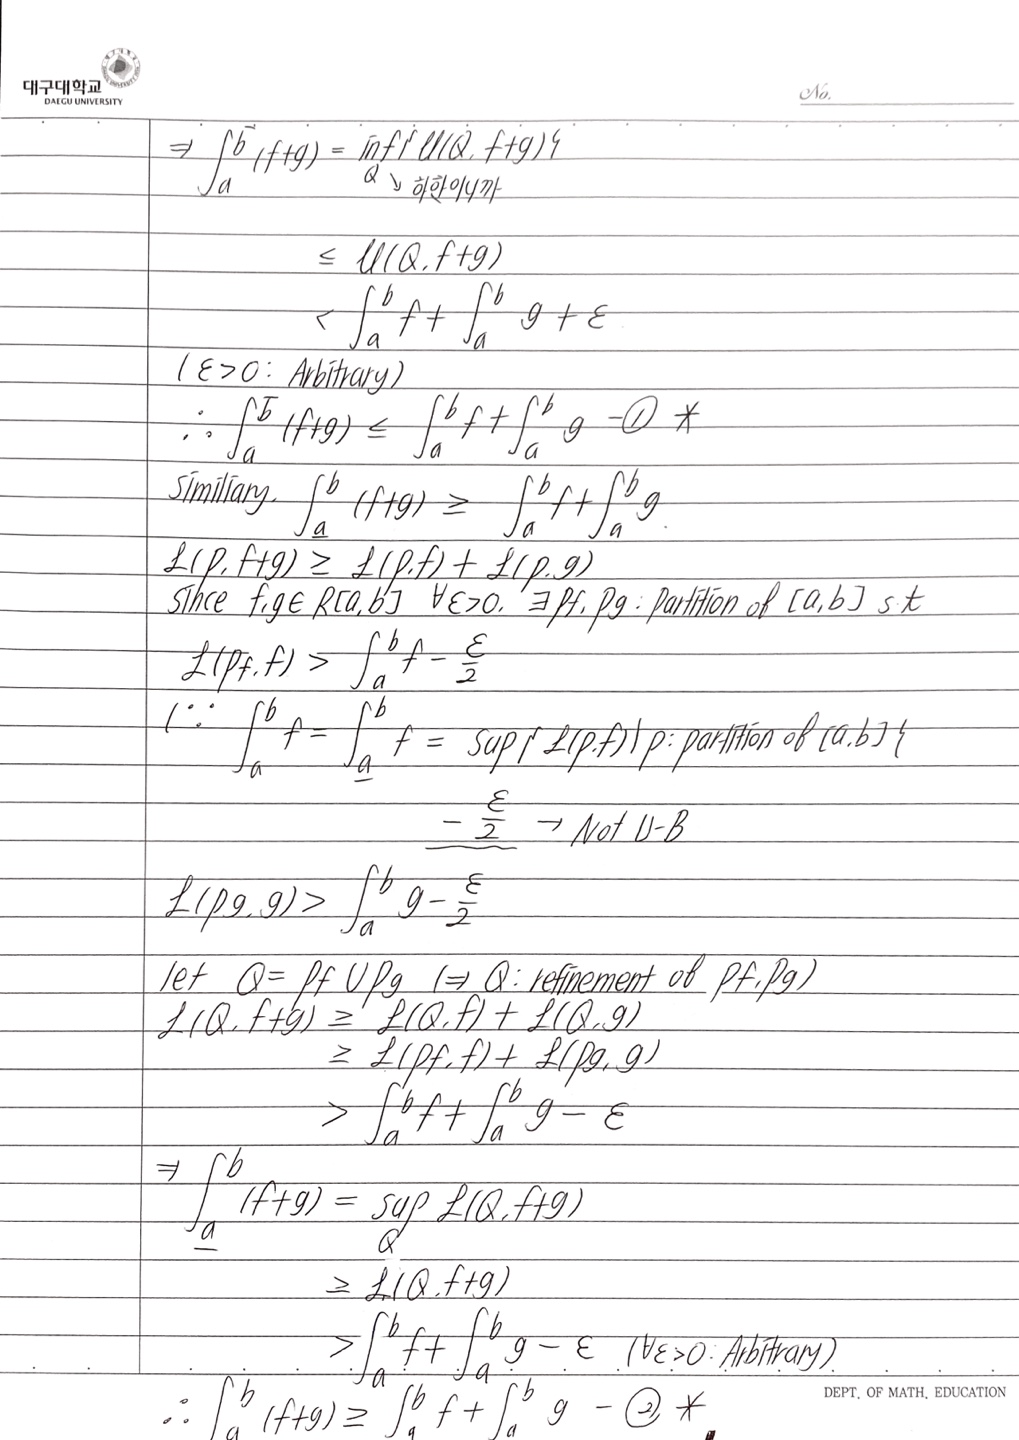 대구대학교
DAEGU UNIVERSITY
No.
⇒ ∫_a^b̅ (f+g) = inf_Q { U(Q, f+g) }
↘ 하한이니까
≤ U(Q, f+g)
< ∫_a^b f + ∫_a^b g + ε
(ε>0: Arbitrary)
∴ ∫_a^b̅ (f+g) ≤ ∫_a^b f + ∫_a^b g -① *
Similiary. ∫_a̲^b (f+g) ≥ ∫_a^b f + ∫_a^b g.
L(p, f+g) ≥ L(p.f) + L(p.g)
since f,g∈R[a,b] ∀ε>0. ∃pf, pg: partition of [a,b] s.t
L(pf, f) > ∫_a^b f - ε/2
(∵ ∫_a^b f = ∫_a̲^b f = sup{ L(p.f) | p: partition of [a.b] }
- ε/2 → Not U-B
L(pg, g) > ∫_a^b g - ε/2
let Q = pf ∪ pg (⇒ Q: refinement of pf, pg)
L(Q, f+g) ≥ L(Q,f) + L(Q,g)
≥ L(pf, f) + L(pg, g)
> ∫_a^b f + ∫_a^b g - ε
⇒ ∫_a̲^b (f+g) = sup_Q L(Q, f+g)
≥ L(Q, f+g)
> ∫_a^b f + ∫_a^b g - ε (∀ε>0: Arbitrary)
DEPT. OF MATH. EDUCATION
∴ ∫_a^b (f+g) ≥ ∫_a^b f + ∫_a^b g - ② *